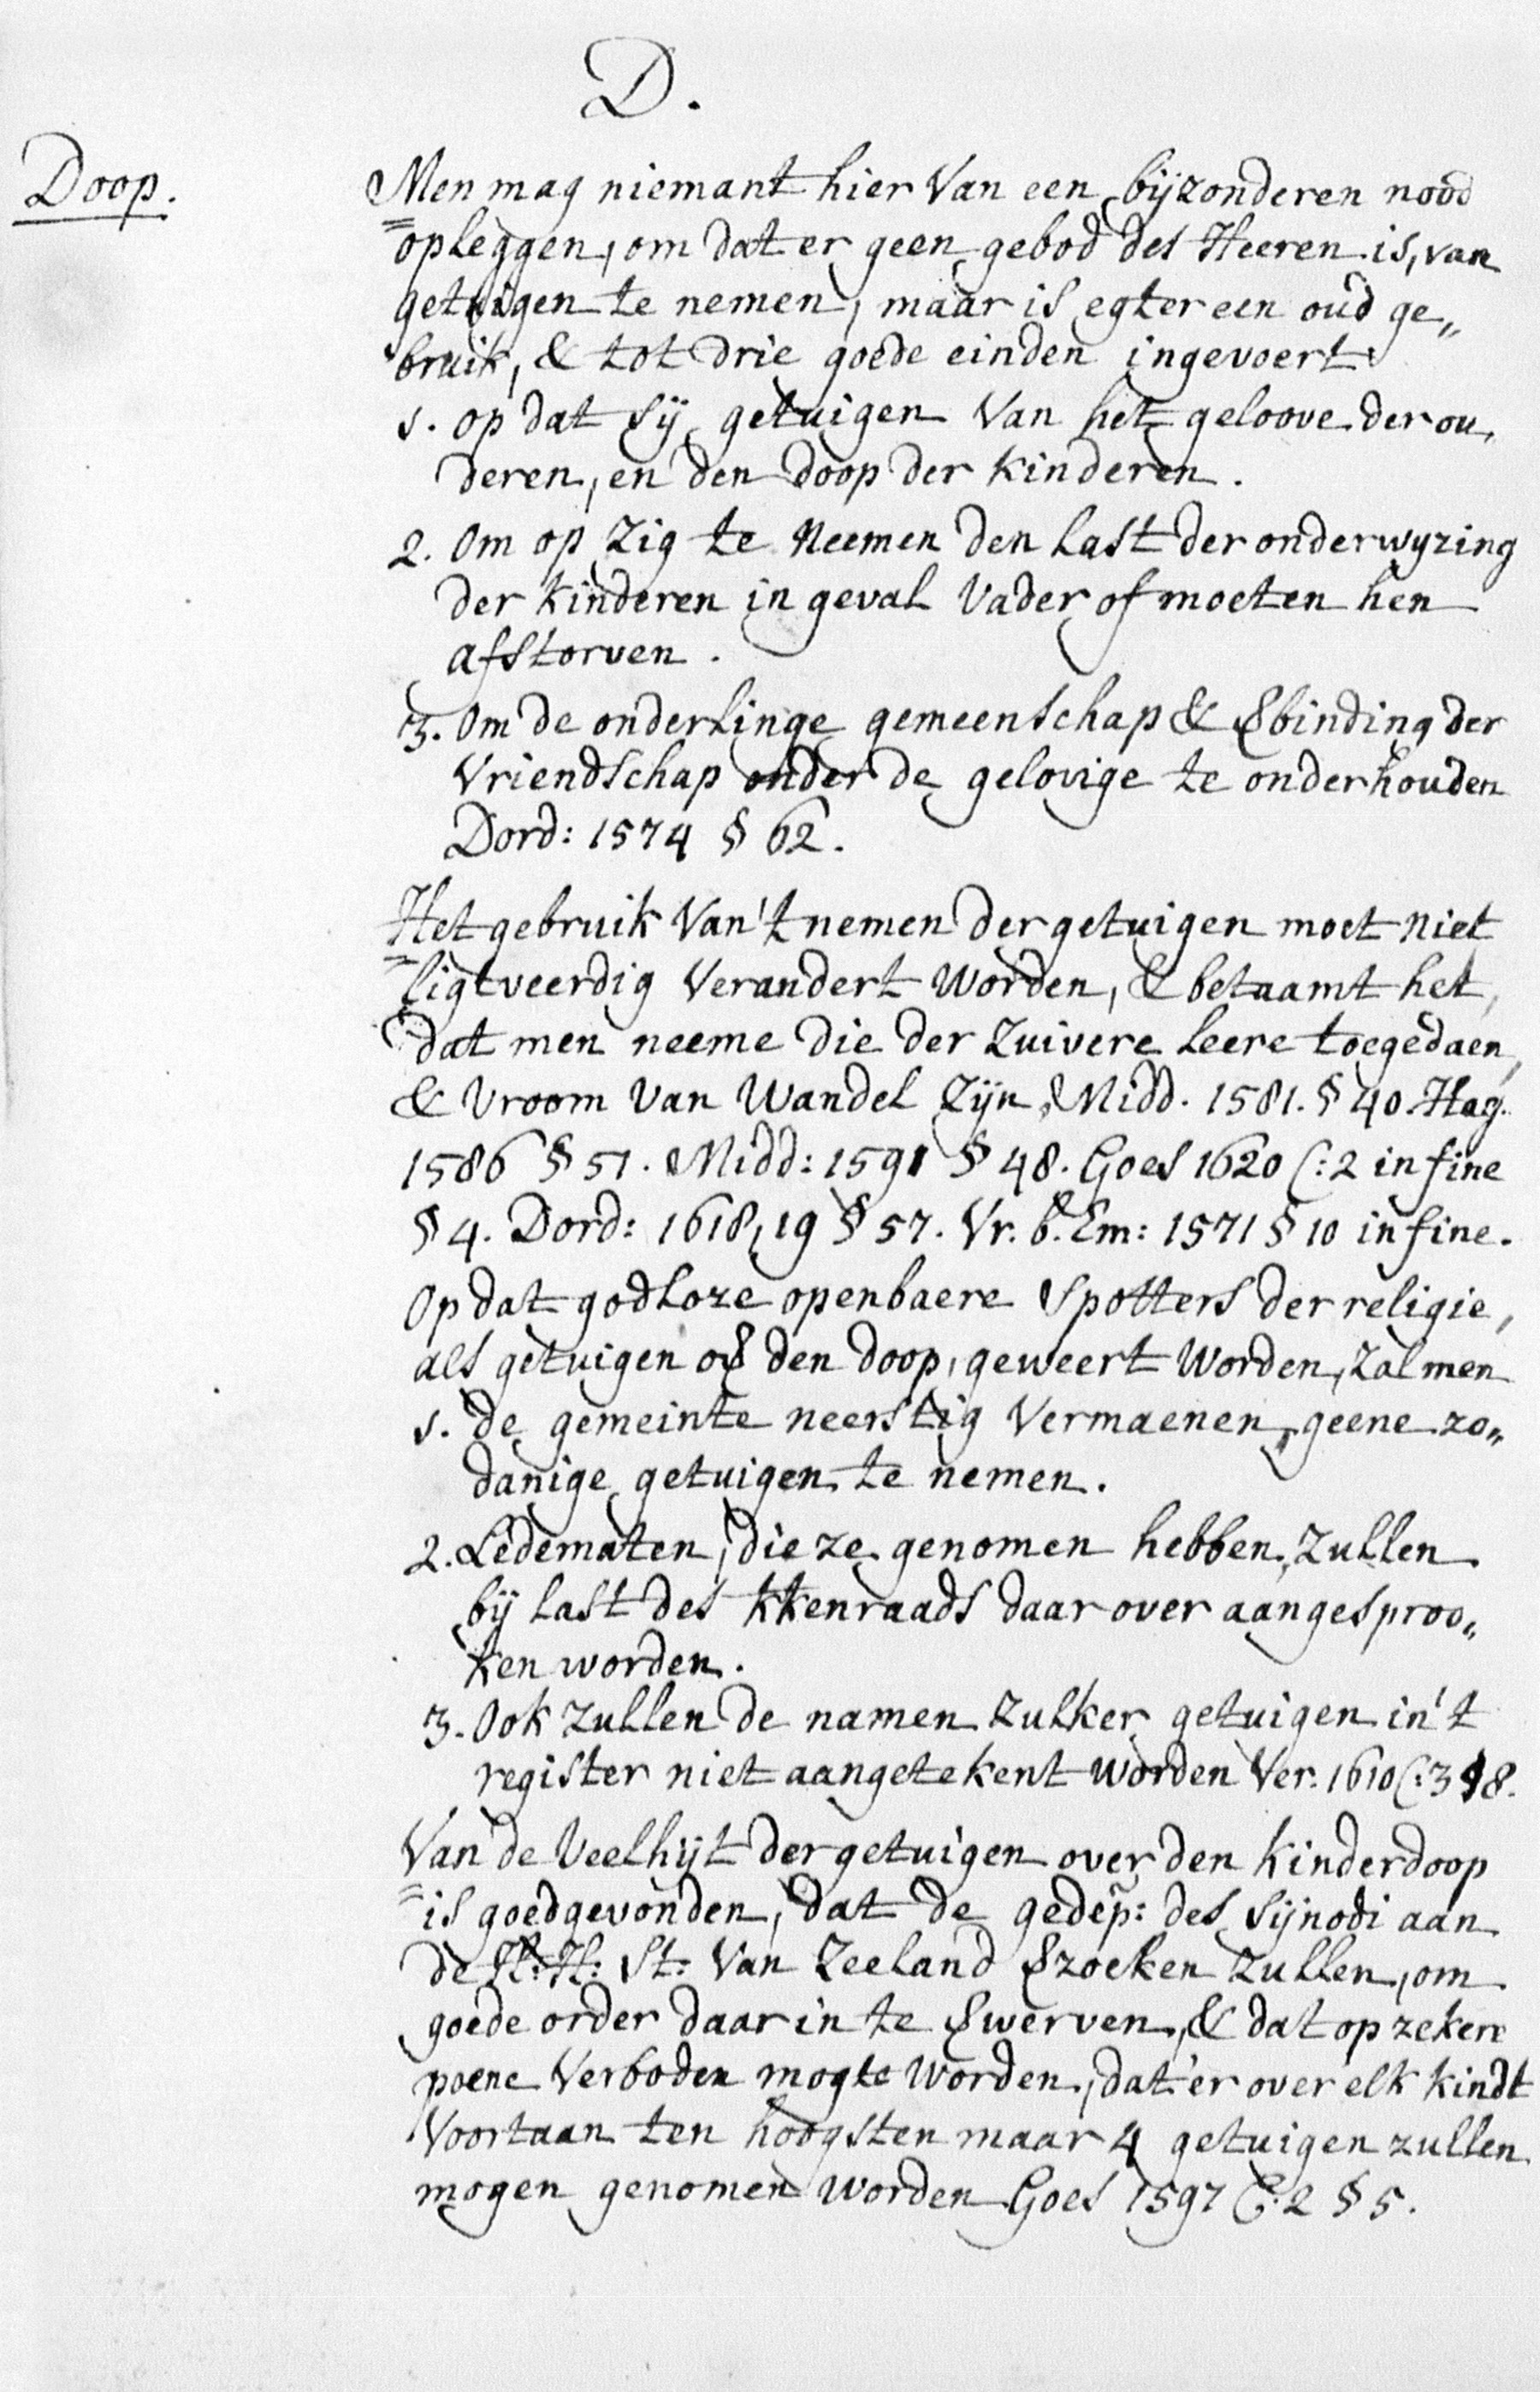 D.
Doop.
Men mag niemant hier Van een bijzonderen nood
opleggen, om dat er geen gebod des Heeren is, van
getuigen te nemen, maar is egter een oud ge„
bruik, & tot drie goede einden ingevoert
1. op dat sij getuigen Van het geloove der ou„
deren, en den doop der kinderen.
2. Om op zig te Neemen den Last der onderwyzing
der kinderen in geval Vader of moeten hen
afstorven.
3. Om de onderlinge gemeenschap & binding der
Vriendschap onder de gelovige te onderhouden
Dord: 1574 § 62.
Het gebruik Van't nemen der getuigen moet niet
ligtveerdig Verandert Worden, & betaamt het,
dat men neeme die der Zuivere Leere toegedaen,
& Vroom Van Wandel Zijn. Midd. 1581. § 40. Hag.
1586 § 51. Midd: 1591 § 48. Goes 1620 C:2 in fine
§ 4. Dord: 1618,19 § 57. Vr. b. Em: 1571 § 10 in fine.
Op dat godloze openbaere Spotters der religie,
als getuigen den doop, geweert Worden, Zal men
1. de gemeinte neerstig Vermaenen, geene zo„
danige getuigen te nemen.
2. Ledematen, die ze genomen hebben, Zullen
bij Last des kkenraads daar over aangesproo„
ken worden.
3. Ook Zullen de namen Zulker getuigen in't
register niet aangetekent worden Ver. 1610 C:3 § 8.
Van de Veelhijt der getuigen over den kinderdoop
is goedgevonden, dat de gedep: des Sijnodi aan
de H:H: St: Van Zeeland zoeken Zullen, om
goede order daar in te werven, & dat op zekere
poene Verboden mogte Worden, dat'er over elk kindt
Voortaan ten hoogsten maar 4 getuigen zullen
mogen genomen Worden Goes 1597 C:2 § 5.